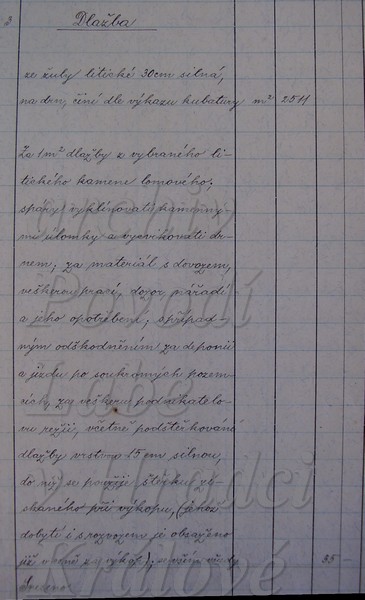 3 Dlažba
ze žuly litické 30cm silná,
na drn, činí dle výkazu kubatury m² 2511
Za 1m² dlažby z vybraného li-
tického kamene lomového;
spáry vyklínovati kamenný-
mi úlomky a vycvikovati dr-
nem; za materiál s dovozem,
veškerou prací, dozor, nářadí
a jeho opotřebení, s případ-
ným odškodněním za deponii
a jízdu po soukromých pozem-
cích, za veškerou podnikatelo-
vu režii, včetně podštěrkování
dlažby vrstvou 15 cm silnou,
do níž se použije štěrku zí-
skaného při výkopu, (jehož
dobytí i s rozvozem je obsaženo
již v ceně za výkop); se vším všudy 35 -
Povodí
Labe
v Hradci
Králové